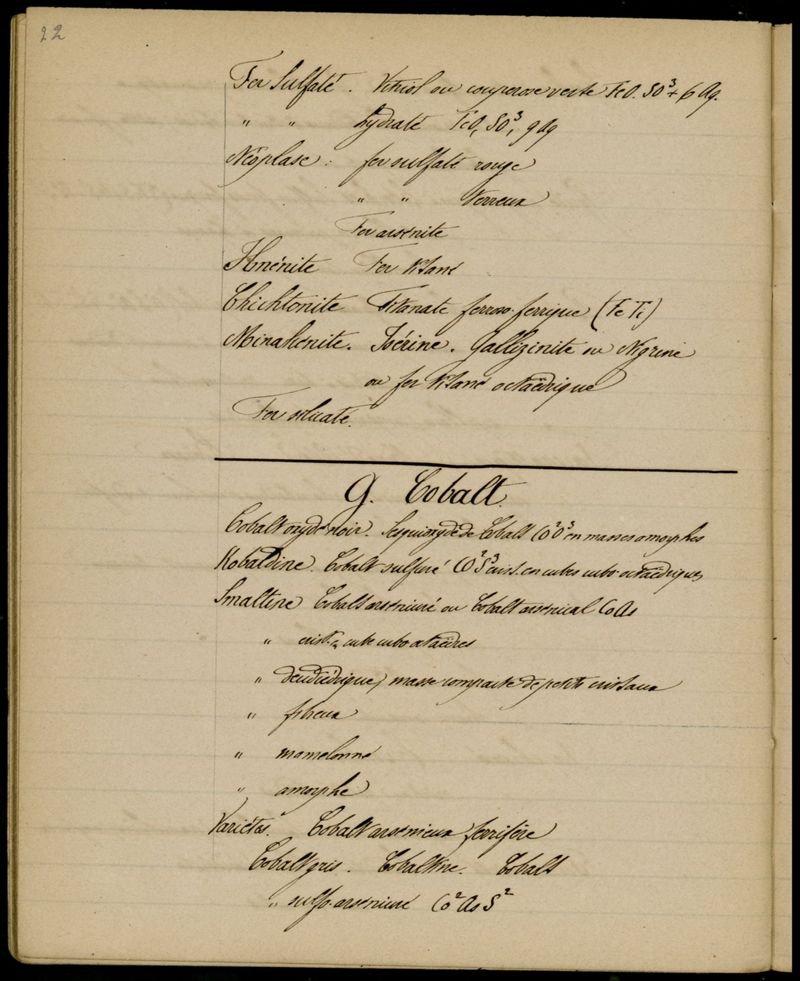 22
Fer Sulfaté. Vitriol ou couperose verte FeO. SO³ + 6 Aq.
" " hydraté FeO, SO³, 9 Aq
Néoplase : fer sulfaté rouge
" " terreux
Fer arsénite
Ilménite Fer titané
Chichtonite Titanate ferroso-ferrique (Fe Ti)
Minakenite. Isérine. Galliginite ou Nigrine
ou fer titané octaëdrique
Fer siliceaté.
9. Cobalt.
Cobalt oxydé noir. Sesquioxyde de Cobalt Co²O³ en masses amorphes
Kobaldine. Cobalt sulfuré Co²S³ crist. en cubes cubo-octaëdriques
Smaltine Cobalt arseniuré ou Cobalt arsenical CoAs
" crist. en cube cubo octaëdres
" dendritique, masse compacte de petits cristaux
" fibreux
" mamelonné
" amorphe
Variétés. Cobalt arsenieux ferrifère
Cobalt gris. Cobaltine. Cobalt
" sulfo-arseniuré Co²As S²